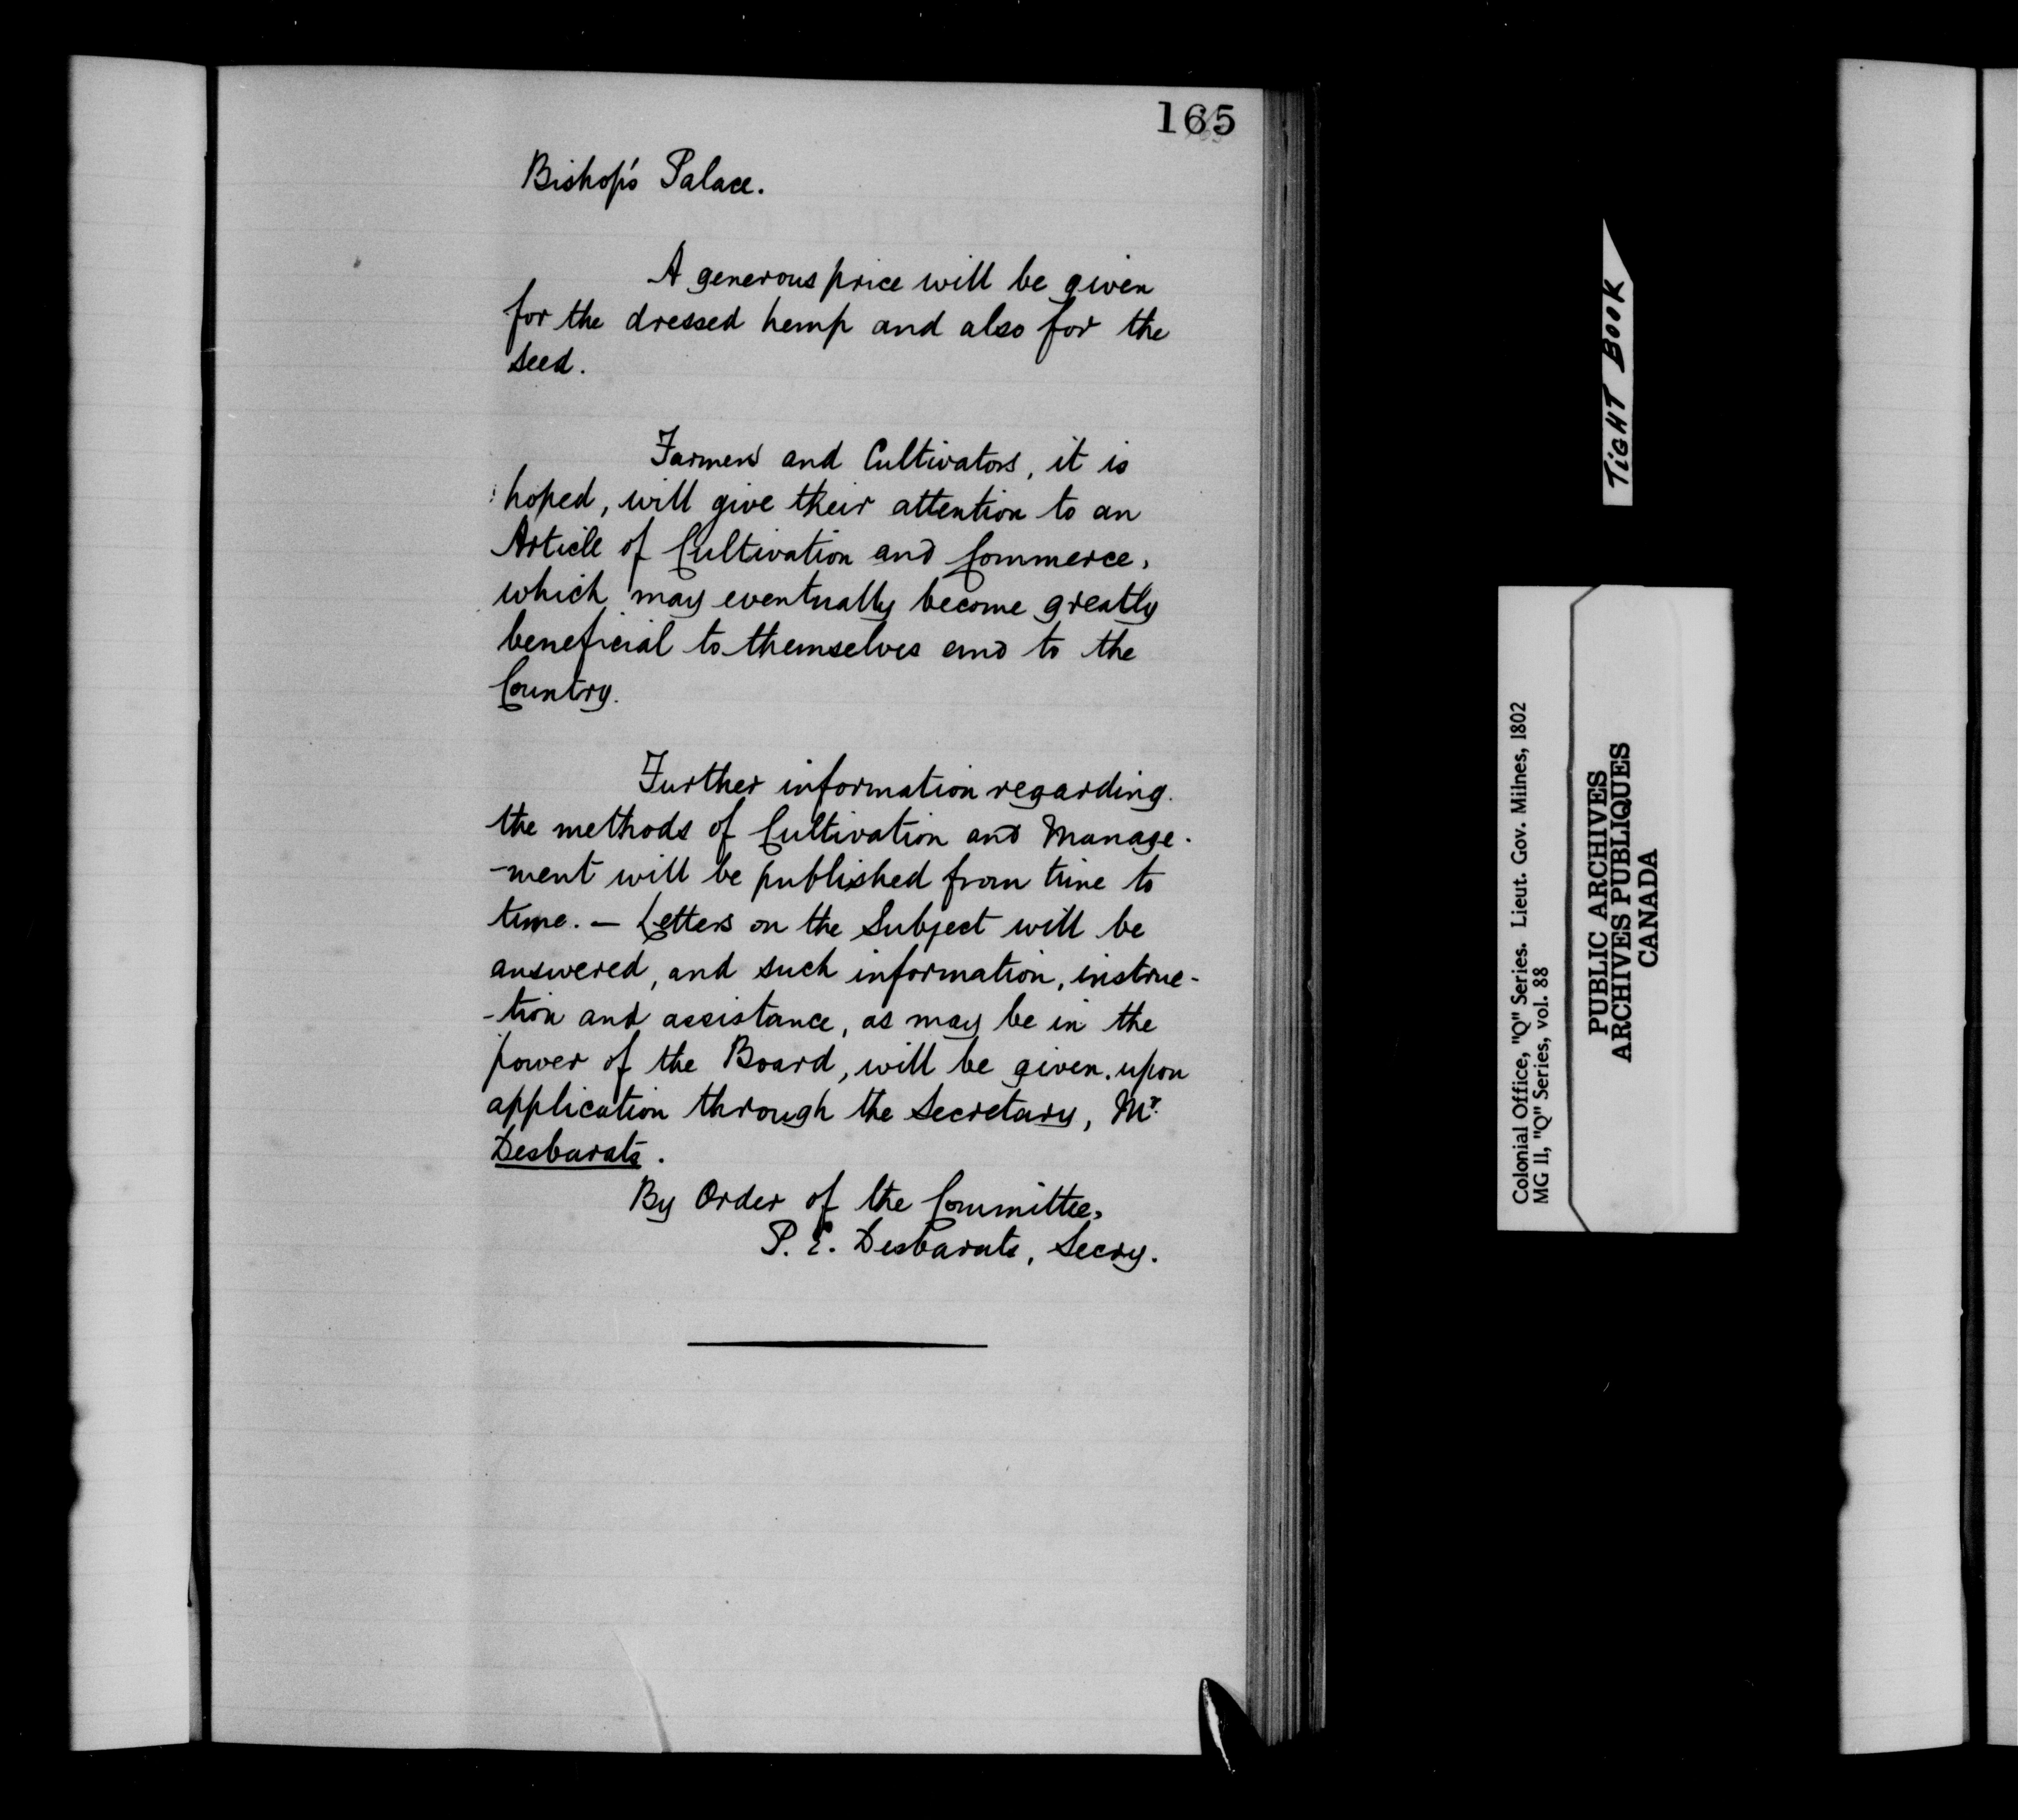 165
Bishop's Palace.
A generous price will be given
for the dressed hemp and also for the
seed.
Farmers and Cultivators, it is
hoped, will give their attention to an
Article of Cultivation and Commerce,
which may eventually become greatly
beneficial to themselves and to the
Country.
Further information regarding
the methods of Cultivation and Manage-
-ment will be published from time to
time. — Letters on the Subject will be
answered, and such information, instruc-
-tion and assistance, as may be in the
power of the Board, will be given upon
application through the Secretary, Mr.
Desbarats.
By Order of the Committee,
P. E. Desbarats, Secry.
TIGHT BOOK
Colonial Office, "Q" Series. Lieut. Gov. Milnes, 1802
MG 11, "Q" Series, vol. 88
PUBLIC ARCHIVES
ARCHIVES PUBLIQUES
CANADA